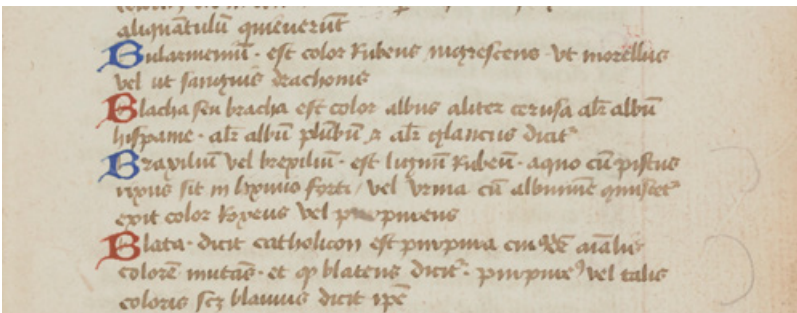 aliquãtulũ quieuerũt
Bularmeniũ · est color Rubeus nigrescens · vt morellus
vel ut sanguis drachonis
Blacha seu bracha est color albus aliter cerusa alr̃ albũ
hispanie · alr̃ albũ plũbũ alr̃ glaucus dicit᷑
Braxiliũ vel brexiliũ · est lignũ Rubeũ · aquo cũ pistus
sit in lixiuio forti / vel vrina cũ albumine
exit color Roxeus vel purpureus
Blata · dicit catholicon est purpura aĩalis
colorẽ mutãs · et blateus dicit᷑ · purpure᷒ vel talis
coloris scꝫ blauius dicit ipẽ